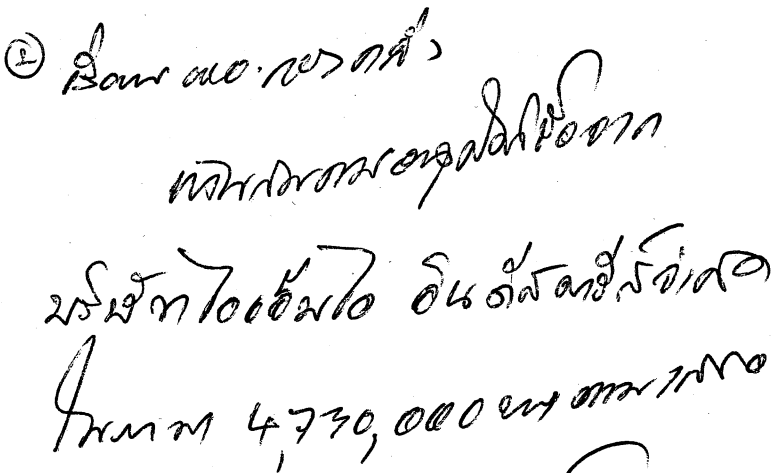 ② เรียน ผอ.กองคลัง
เห็นสมควรอนุมัติให้ซื้อจาก
บริษัท ไอเอ็มไอ อินดัสตรีส์ จำกัด
ในราคา 4,730,000 บาท ตามเสนอ